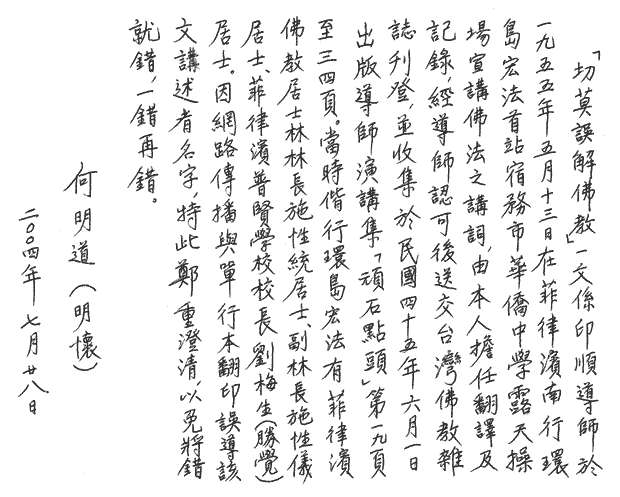 「切莫誤解佛教」一文係印順導師於
一九五五年五月十三日在菲律濱南行環
島宏法首站宿務市華僑中學露天操
場宣講佛法之講詞，由本人擔任翻譯及
記錄，經導師認可後送交台灣佛教雜
誌刊登，並收集於民國四十五年六月一日
出版導師演講集「頑石點頭」第一九頁
至三四頁。當時偕行環島宏法有菲律濱
佛教居士林林長施性統居士、副林長施性儀
居士、菲律濱普賢學校校長劉梅生（勝覺）
居士。因網路傳播與單行本翻印誤導該
文講述者名字，特此鄭重澄清，以免將錯
就錯，一錯再錯。
何明道（明懷）
二〇〇四年七月廿八日